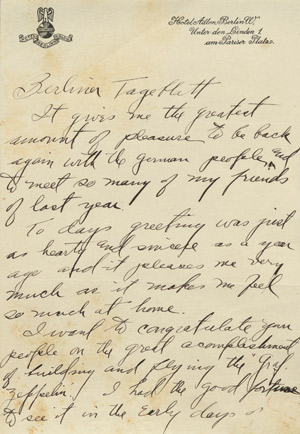 Hotel Adlon, Berlin W.
Unter den Linden 1
am Pariser Platz.
Berliner Tageblatt
It gives me the greatest
amount of pleasure to be back
again with the german people and
to meet so many of my friends
of last year.
To days greeting was just
as hearty and sincere as a year
ago and it pleases me very
much as it makes me feel
so much at home.
I want to congratulate your
people on the great acomplishment
of building and flying the Graf
Zeppelin. I had the good fortune
to see it in the Early days